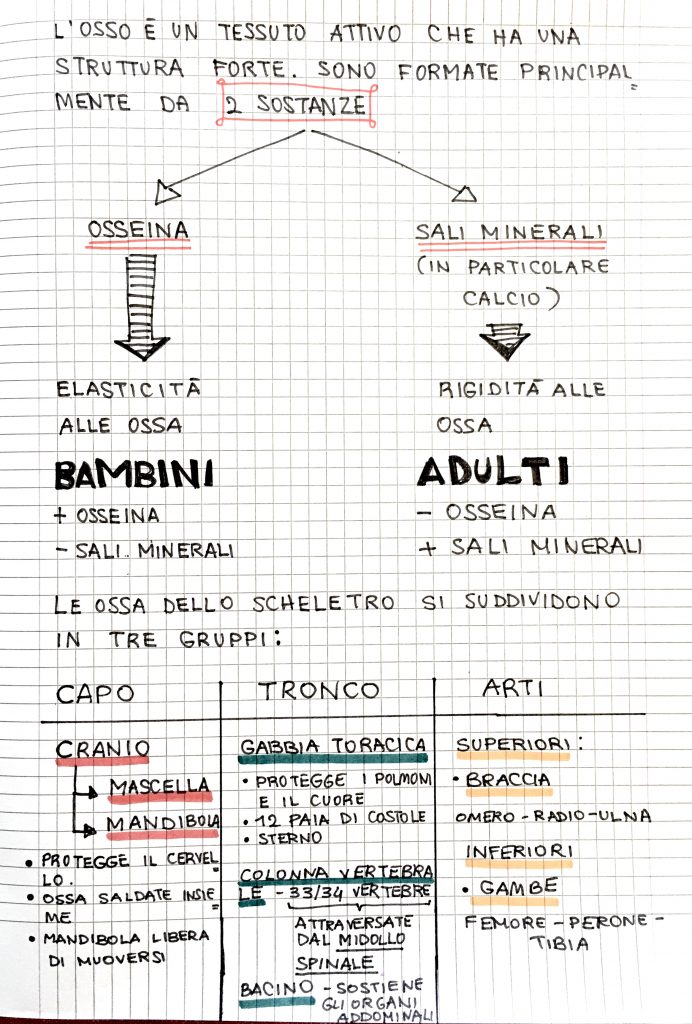 L'OSSO È UN TESSUTO ATTIVO CHE HA UNA
STRUTTURA FORTE. SONO FORMATE PRINCIPAL=
MENTE DA 2 SOSTANZE
OSSEINA
ELASTICITÀ
ALLE OSSA
BAMBINI
+ OSSEINA
- SALI MINERALI
SALI MINERALI
(IN PARTICOLARE
CALCIO)
RIGIDITÀ ALLE
OSSA
ADULTI
- OSSEINA
+ SALI MINERALI
LE OSSA DELLO SCHELETRO SI SUDDIVIDONO
IN TRE GRUPPI:
CAPO
CRANIO
MASCELLA
MANDIBOLA
• PROTEGGE IL CERVEL=
LO.
• OSSA SALDATE INSIE=
ME
• MANDIBOLA LIBERA
DI MUOVERSI
TRONCO
GABBIA TORACICA
• PROTEGGE I POLMONI
E IL CUORE
• 12 PAIA DI COSTOLE
• STERNO
COLONNA VERTEBRA
LE - 33/34 VERTEBRE
ATTRAVERSATE
DAL MIDOLLO
SPINALE
BACINO - SOSTIENE
GLI ORGANI
ADDOMINALI
ARTI
SUPERIORI:
• BRACCIA
OMERO - RADIO - ULNA
INFERIORI
• GAMBE
FEMORE - PERONE -
TIBIA